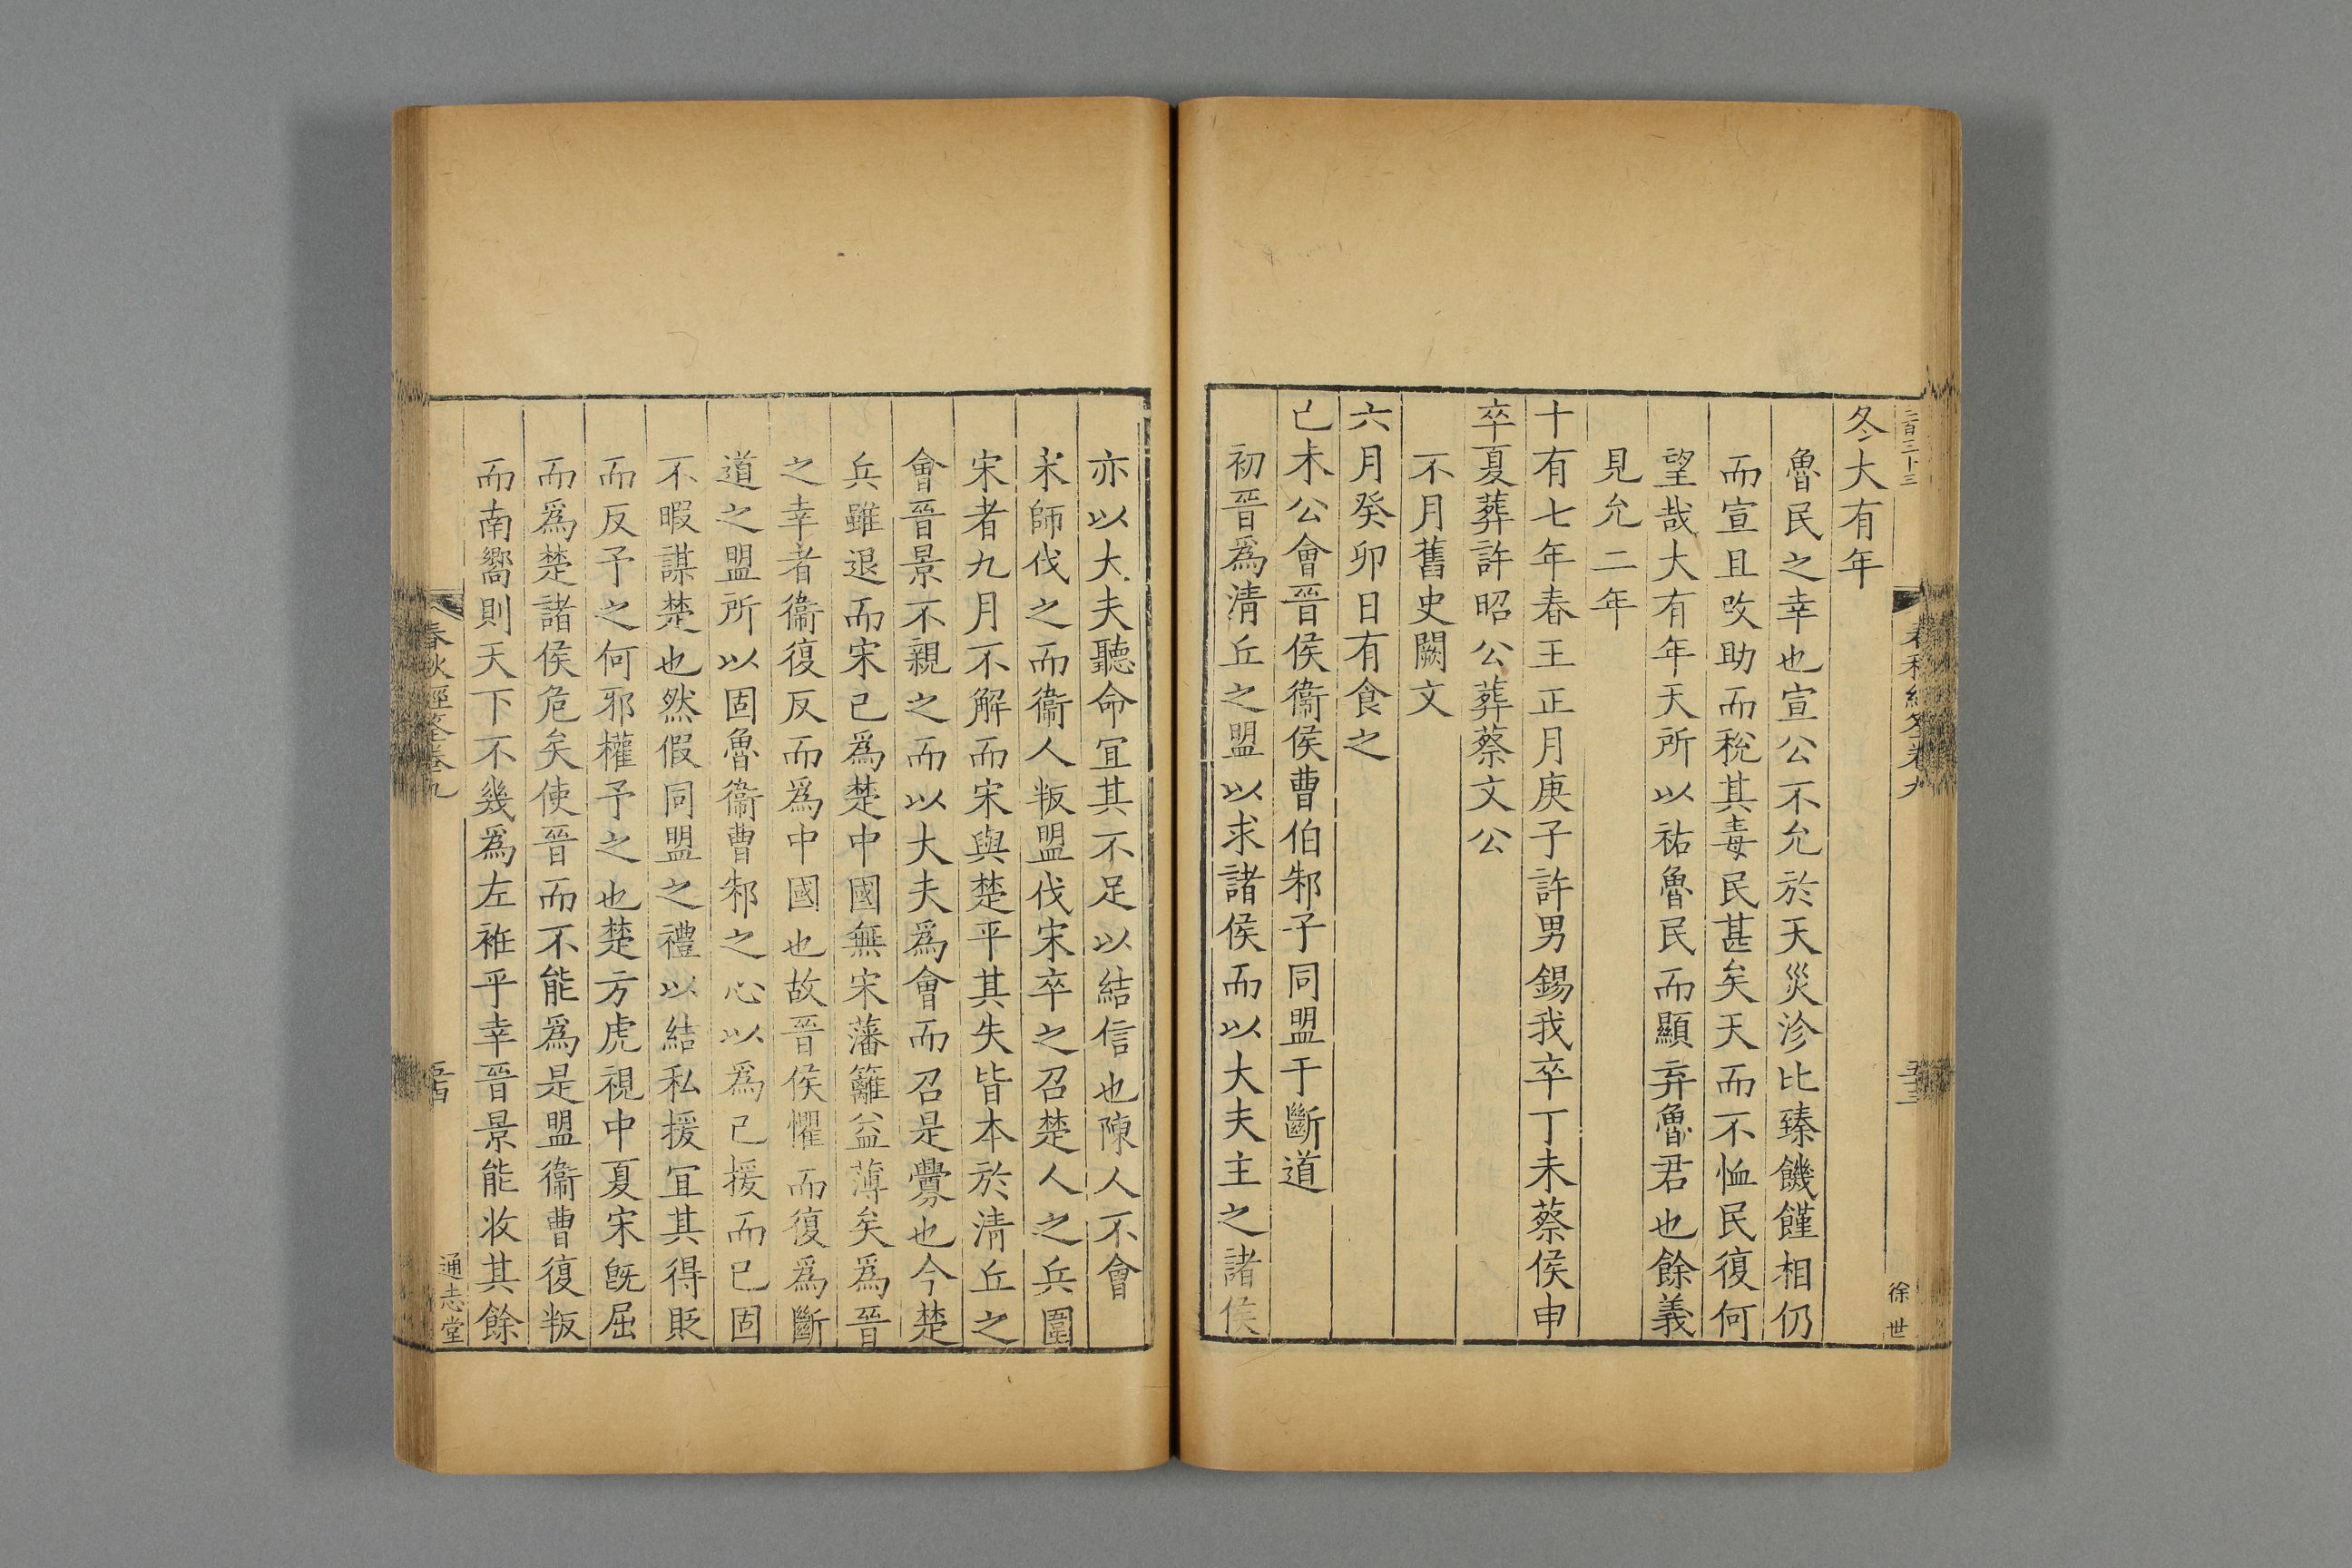 冬大有年
魯民之幸也宣公不允於天災沴比臻饑饉相仍
而宣且改助而稅其毒民甚矣天而不恤民復何
望哉大有年天所以祐魯民而顯弃魯君也餘義
見允二年
十有七年春王正月庚子許男錫我卒丁未蔡侯申
卒夏葬許昭公葬蔡文公
不月舊史闕文
六月癸卯日有食之
己未公會晉侯衞侯曹伯邾子同盟于斷道
初晉爲清丘之盟以求諸侯而以大夫主之諸侯
徐世
亦以大夫聽命宜其不足以結信也陳人不會
宋師伐之而衞人叛盟伐宋卒之召楚人之兵圍
宋者九月不解而宋與楚平其失皆本於清丘之
會晉景不親之而以大夫爲會而召是釁也今楚
兵雖退而宋已爲楚中國無宋藩籬益薄矣爲晉
之幸者衞復反而爲中國也故晉侯懼而復爲斷
道之盟所以固魯衞曹邾之心以爲己援而已固
不暇謀楚也然假同盟之禮以結私援宜其得貶
而反予之何邪權予之也楚方虎視中夏宋旣屈
而爲楚諸侯危矣使晉而不能爲是盟衞曹復叛
而南嚮則天下不幾爲左袵乎幸晉景能收其餘
春秋經筌卷九
通志堂